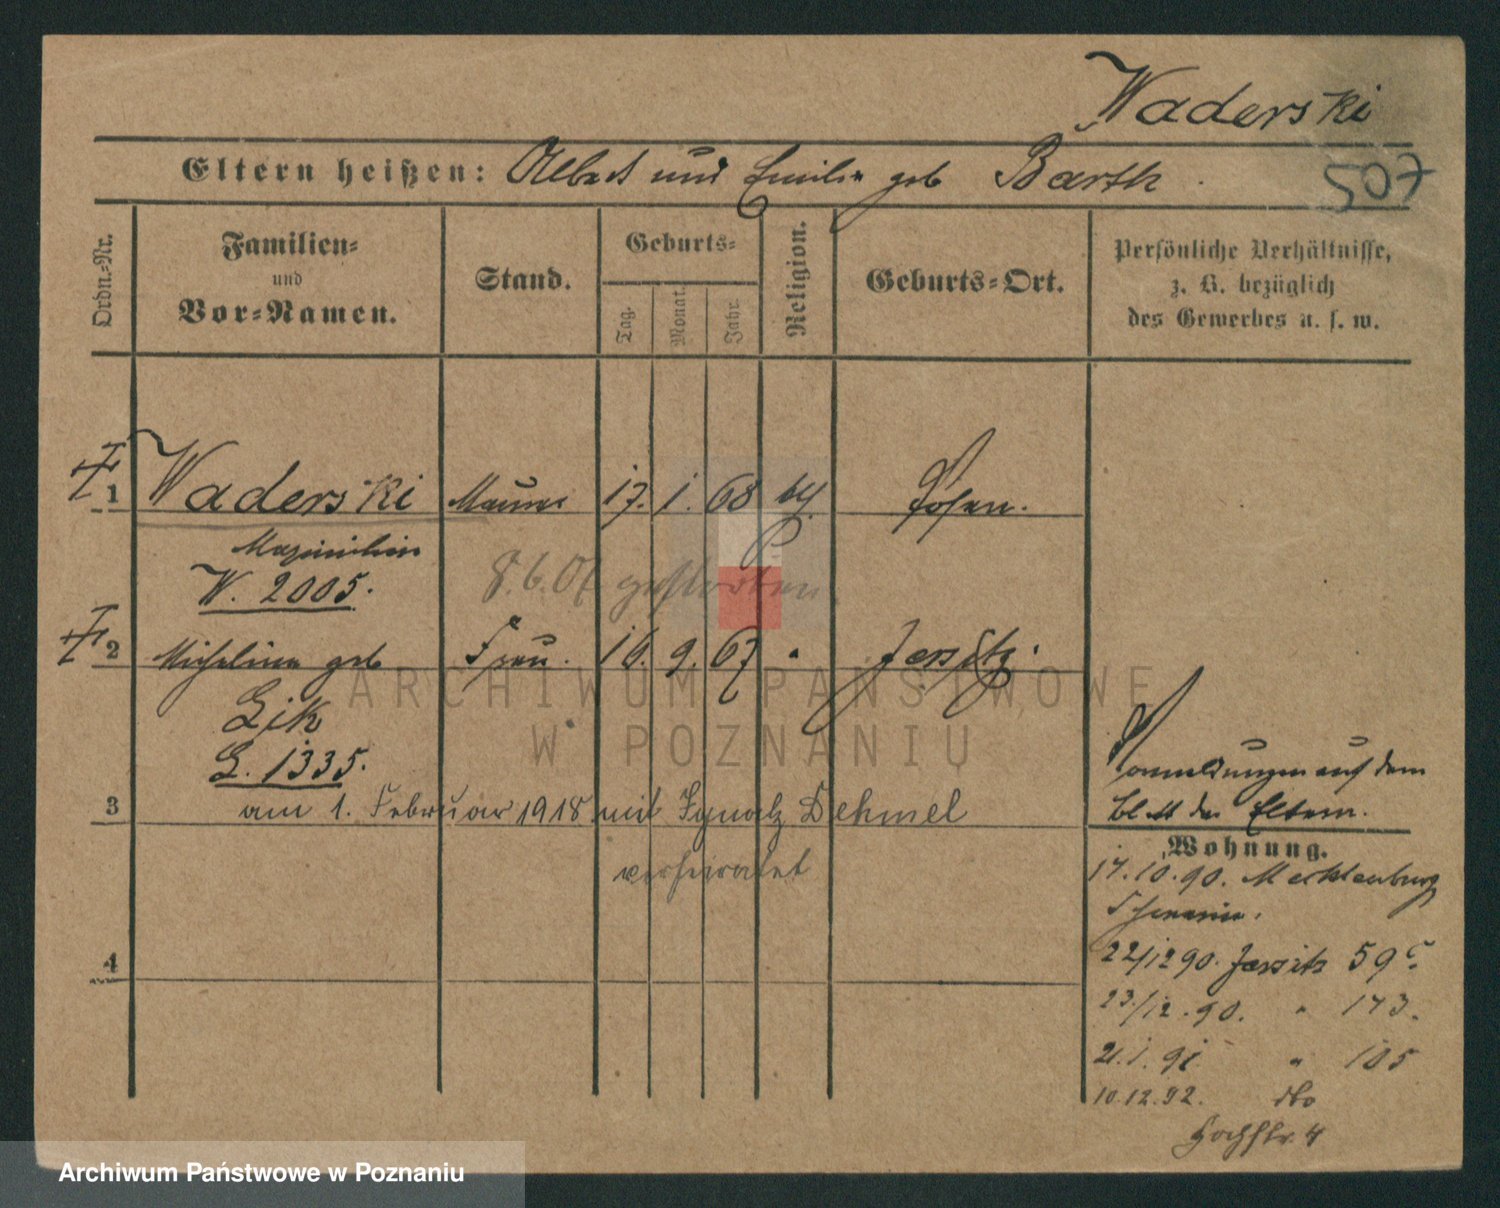 Waderski
507
Eltern heißen: Albert und Emilie geb Barth.
Ordn.-Nr.
Familien- und Vor-Namen.
Stand.
Geburts-
Tag.
Monat.
Jahr.
Religion.
Geburts-Ort.
Persönliche Verhältnisse,
z. B. bezüglich
des Gewerbes u. s. w.
1 Waderski Maurer 17. 1. 68 kth. Posen.
Maximilian
W. 2005.
8.6.07 gestorben.
2 Michalina geb Frau. 16. 9. 67 " Jersitz.
Lik
L. 1335.
3 am 1. Februar 1918 mit Ignatz Dehmel
verheiratet
4
Anmeldungen auf dem
Blatt der Eltern.
Wohnung.
17.10.90. Mecklenburg
Schwerin.
22/12 90. Jersitz 59c.
23./12.90. " 173.
21.1.91 " 105
10.12.92. dto
Hochstr. 4
ARCHIWUM PAŃSTWOWE
W POZNANIU
Archiwum Państwowe w Poznaniu